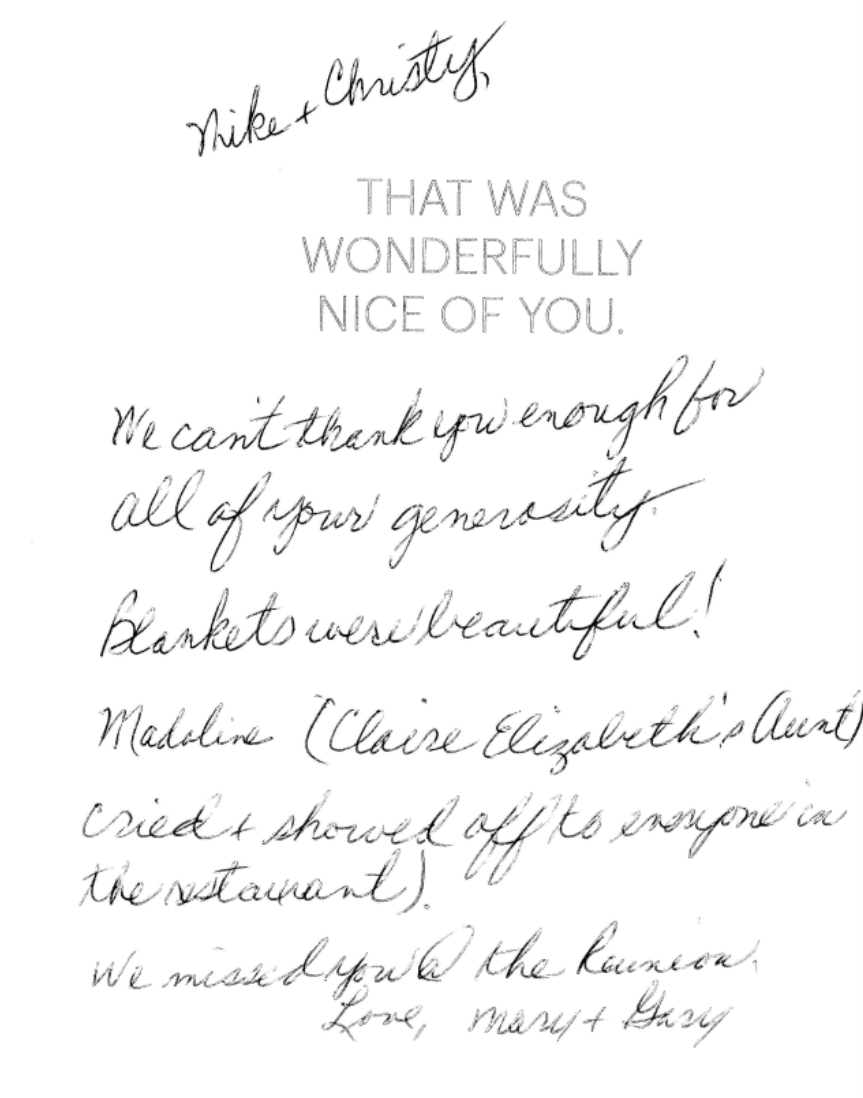 Mike + Christy,
THAT WAS
WONDERFULLY
NICE OF YOU.
We can't thank you enough for
all of your generosity.
Blankets were beautiful!
Madoline (Claire Elizabeth's Aunt)
cried + showed off to everyone in
the restaurant).
We missed you @ the Reunion.
Love, Mary + Gary